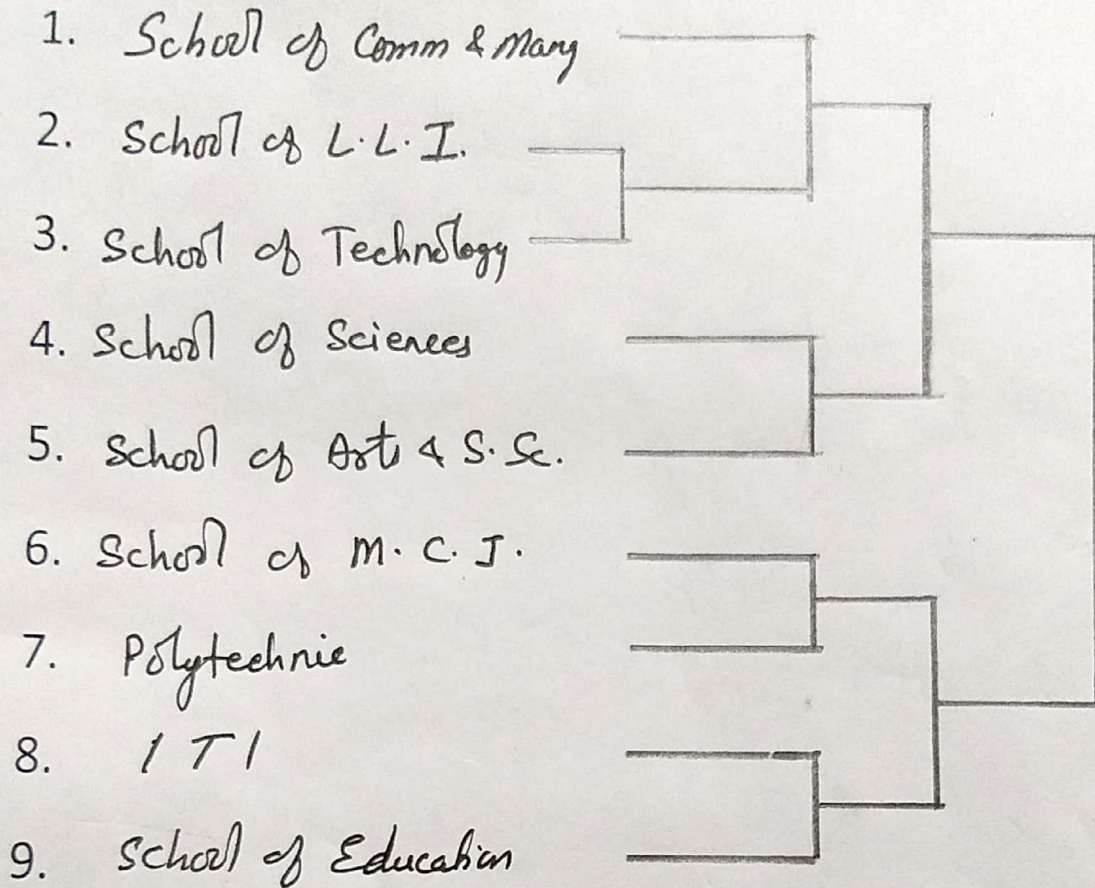 1. School of Comm & Mang
2. School of L.L.I.
3. School of Technology
4. School of Sciences
5. School of Art & S.Sc.
6. School of M.C.J.
7. Polytechnic
8. ITI
9. School of Education